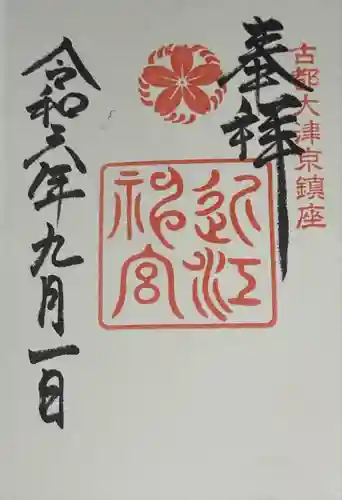 古都大津京鎮座
奉拝
近江
神宮
令和六年九月一日